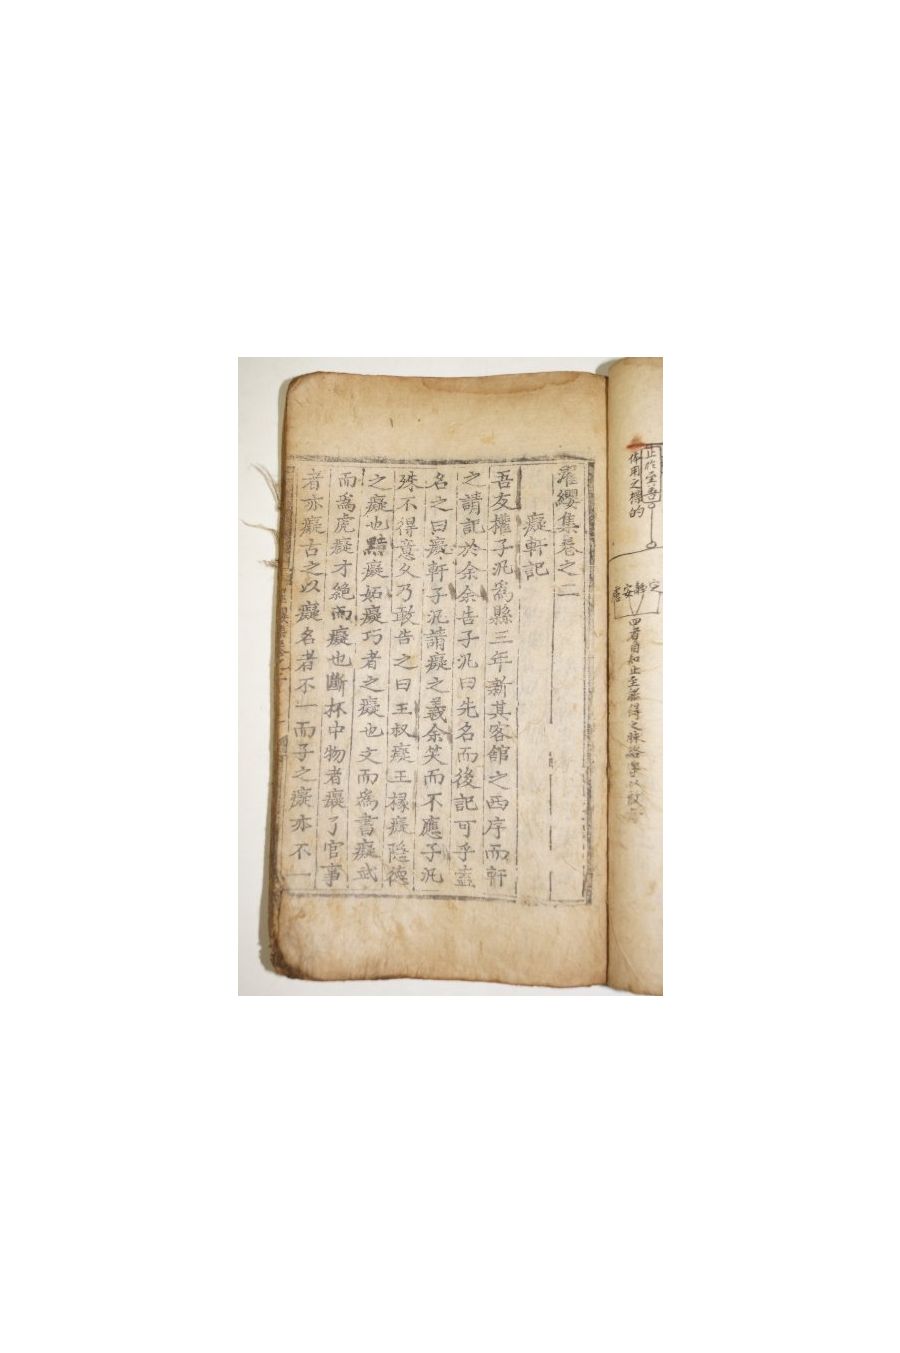 止於至善
体用之標的
定靜安慮
四者自知止至
濯纓集卷之二
癡軒記
吾友權子汎爲縣三年新其客館之西序而軒
之請記於余余告子汎曰先名而後記可乎盍
名之曰癡軒子汎請癡之義余笑而不應子汎
殊不得意久乃敢告之曰王叔癡王掾癡隱德
之癡也黠癡妬癡巧者之癡也文而爲書癡武
而爲虎癡才絶而癡也斷杯中物者癡了官事
者亦癡古之以癡名者不一而子之癡亦不一